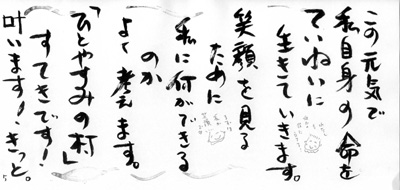 この元気で
私自身の命を
ていねいに
生きていきます。
笑顔を見る
ために
私に何ができる
のか
よく考えます。
「ひとやすみの村」
すてきです!
叶います!きっと。